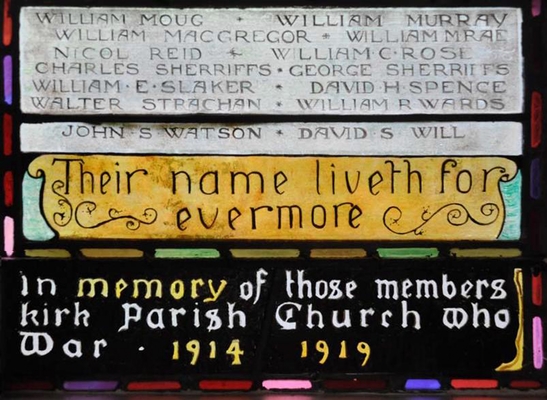 WILLIAM MOUG * WILLIAM MURRAY
WILLIAM MACGREGOR * WILLIAM McRAE
NICOL REID * WILLIAM C. ROSE
CHARLES SHERRIFFS * GEORGE SHERRIFFS
WILLIAM · E · SLAKER * DAVID H SPENCE
WALTER STRACHAN * WILLIAM R WARDS
JOHN S WATSON * DAVID S WILL
Their name liveth for
evermore
In memory of those members
kirk Parish Church who
War · 1914 1919